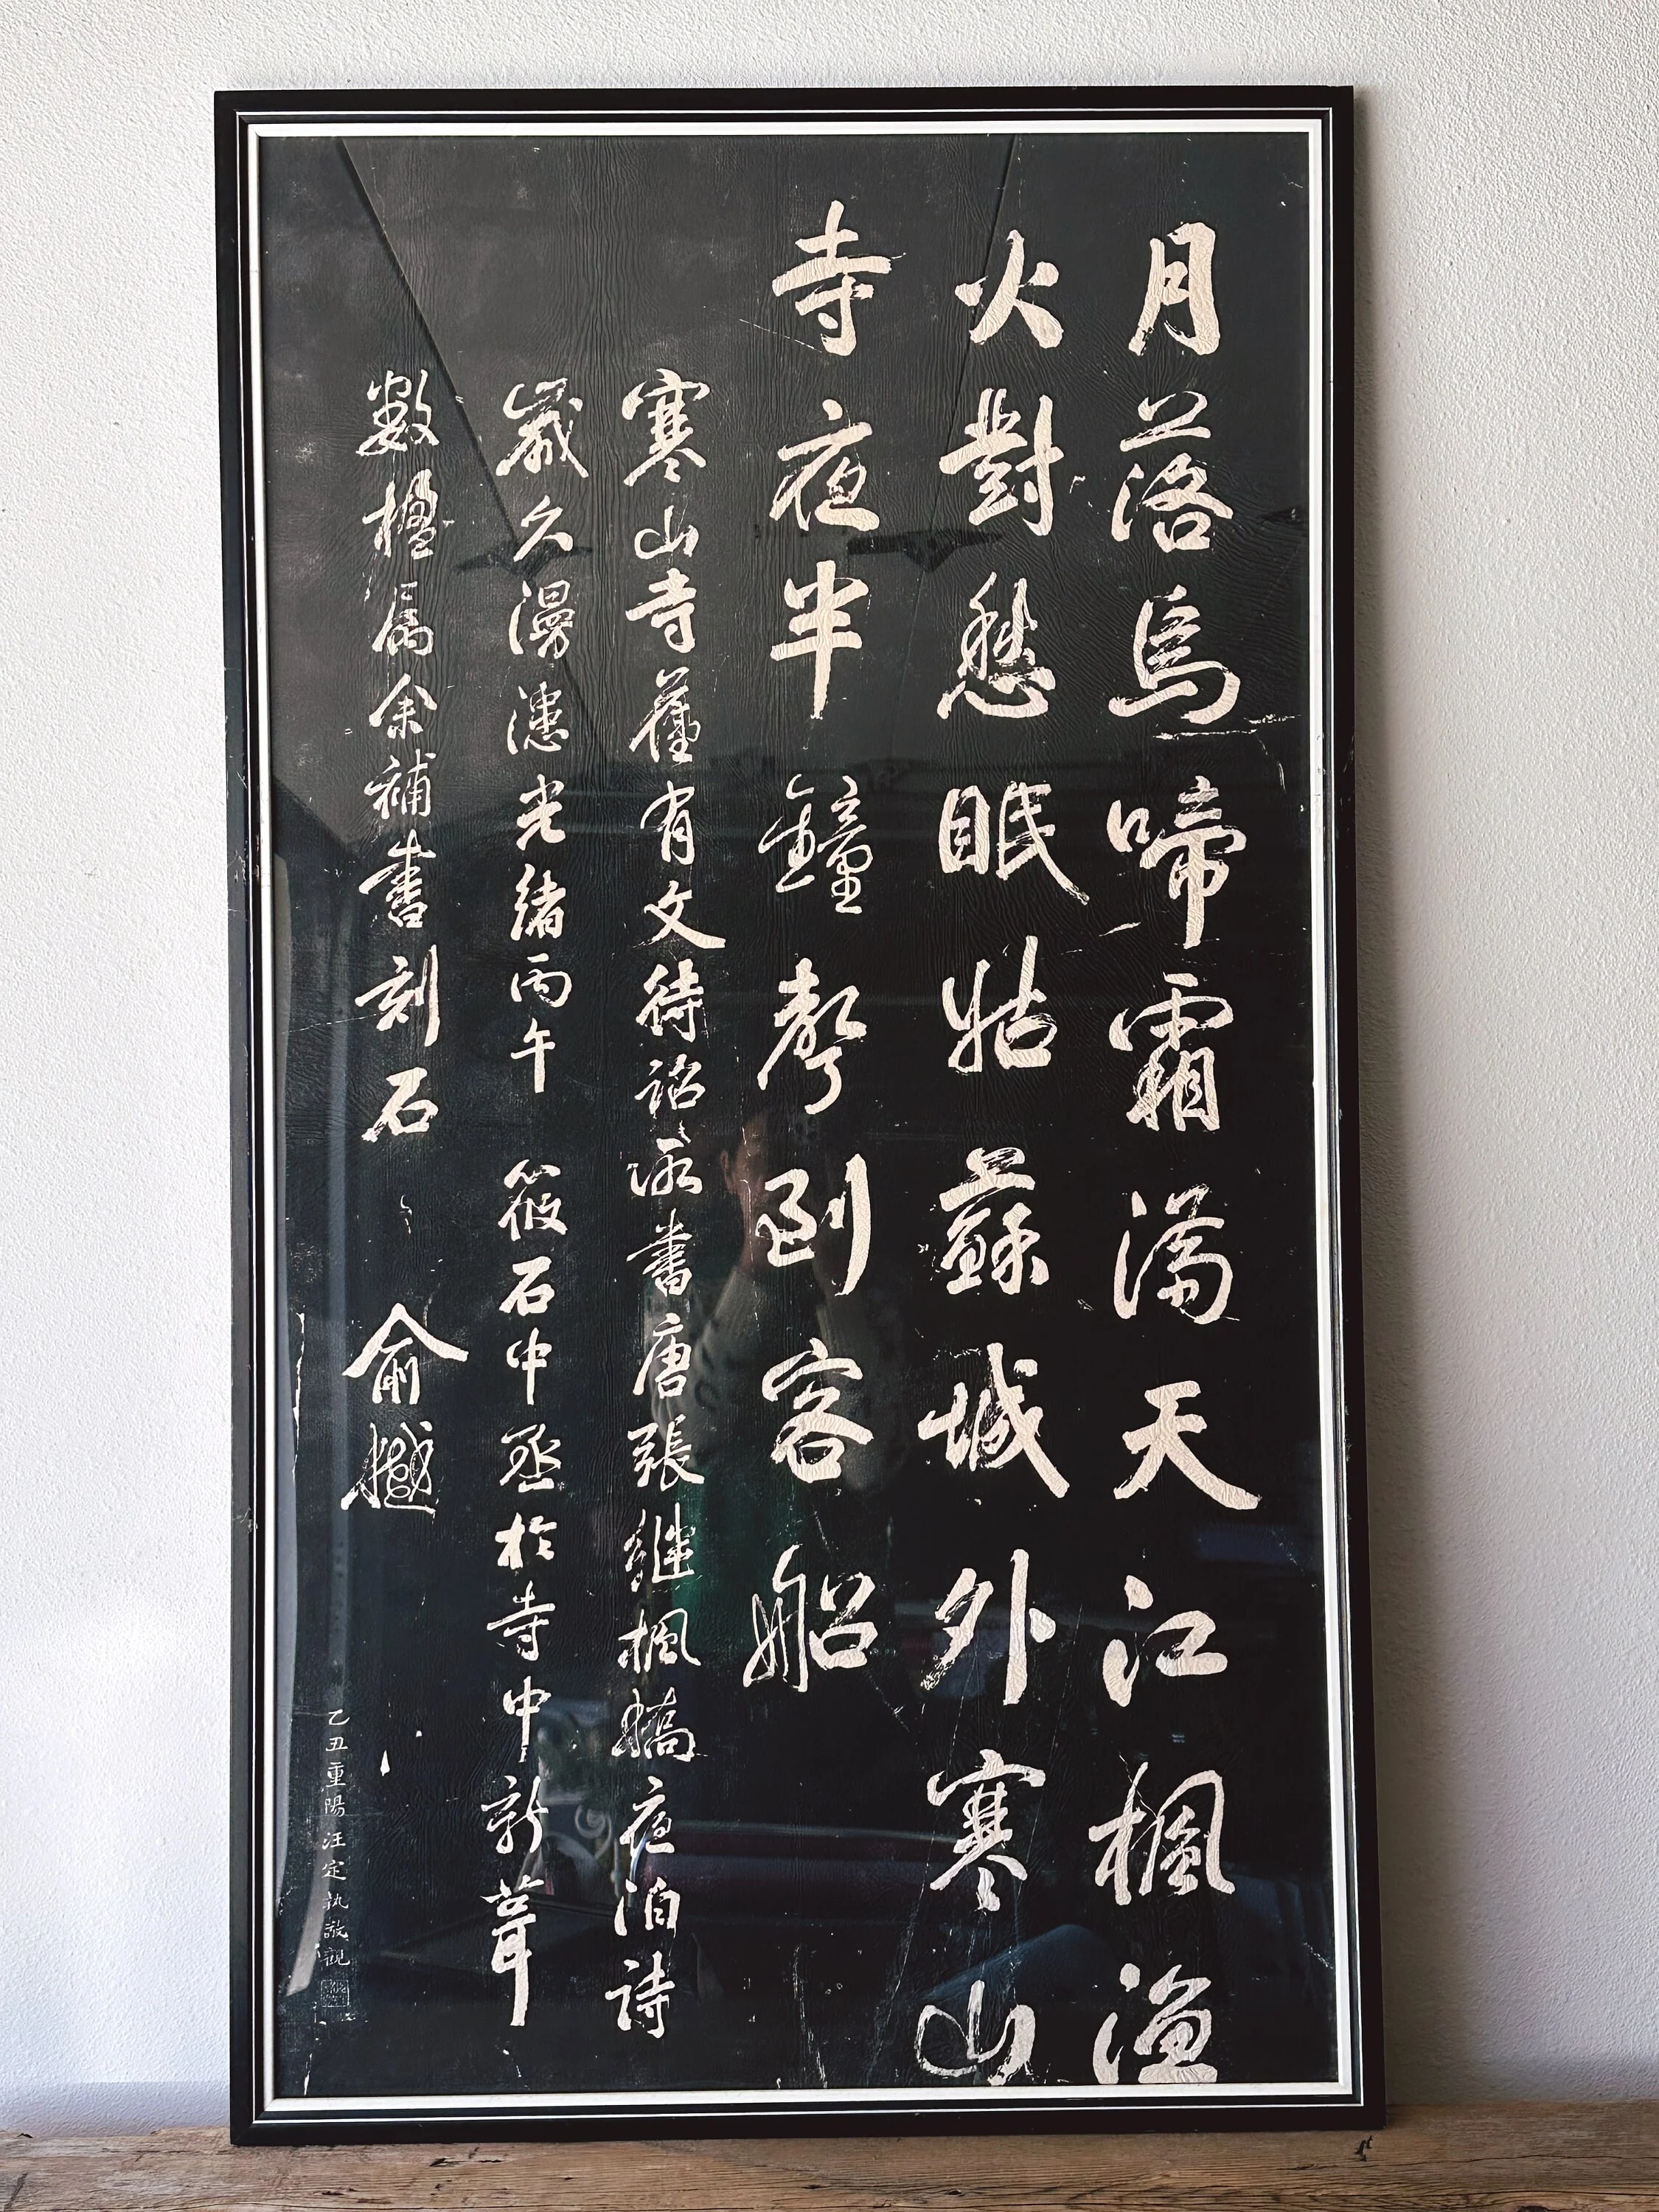 月落烏啼霜滿天江楓漁
火對愁眠姑蘇城外寒山
寺夜半鐘聲到客船
寒山寺舊有文待詔所書唐張繼楓橋夜泊詩
歲久漫漶光緒丙午筱石中丞於寺中新葺
數楹属余補書刻石 俞樾
乙丑重陽汪定執敬觀